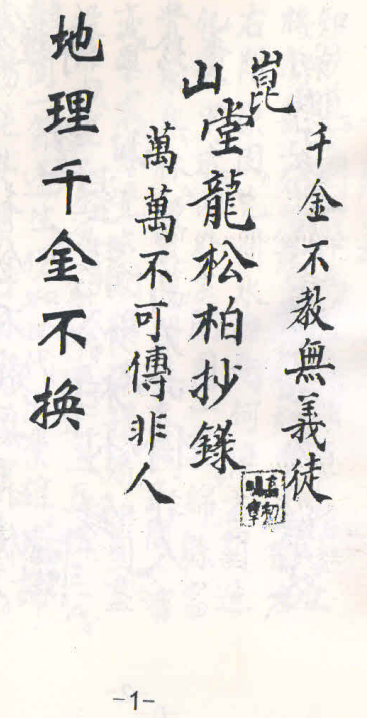 千金不教無義徒
崑山堂龍松柏抄錄
萬萬不可傳非人
地理千金不换
-1-